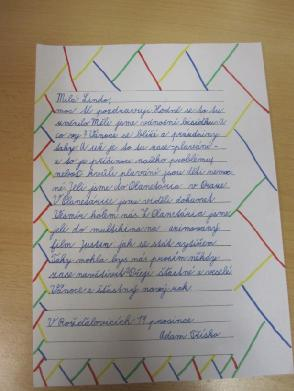 Milá Lenko,
moc Tě pozdravuji. Hodně se to tu
změnilo. Měli jsme vánoční besídku. A
co vy? Vánoce se blíží a prázdniny
taky. A teď je to tu zase - plavání -
a to je příčinou našeho problému,
neboť kvůli plavání jsou děti nemoc-
né. Jeli jsme do Planetária v Praze.
V Planetáriu jsme viděli dokument
Vesmír kolem nás. Z Planetária jsme
jeli do multikina na animovaný
film Justin: jak se stát rytířem.
Taky mohla bys nás prosím někdy
zase navštívit? Přeji šťastné a veselé
Vánoce a šťastný nový rok.
V Rožďalovicích 19. prosince
Adam Příška